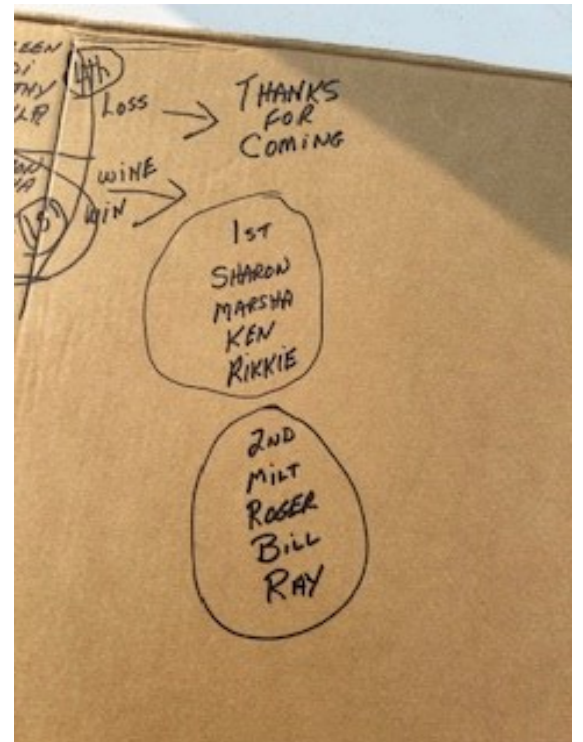 4th
LOSS → THANKS
FOR
COMING
WINE
WIN
1ST
1ST
SHARON
MARSHA
KEN
RIKKIE
2ND
MILT
ROGER
BILL
RAY